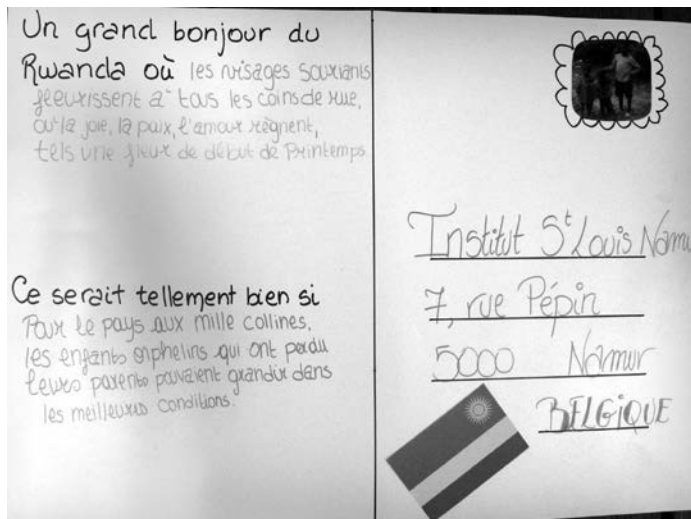 Un grand bonjour du
Rwanda où les visages souriants
fleurissent à tous les coins de rue,
où la joie, la paix, l'amour règnent,
tels une fleur de début de Printemps.
Ce serait tellement bien si
Pour le pays aux mille collines,
les enfants orphelins qui ont perdu
leurs parents pouvaient grandir dans
les meilleures conditions.
Institut St Louis Namur
7, rue Pépin
5000 Namur
BELGIQUE